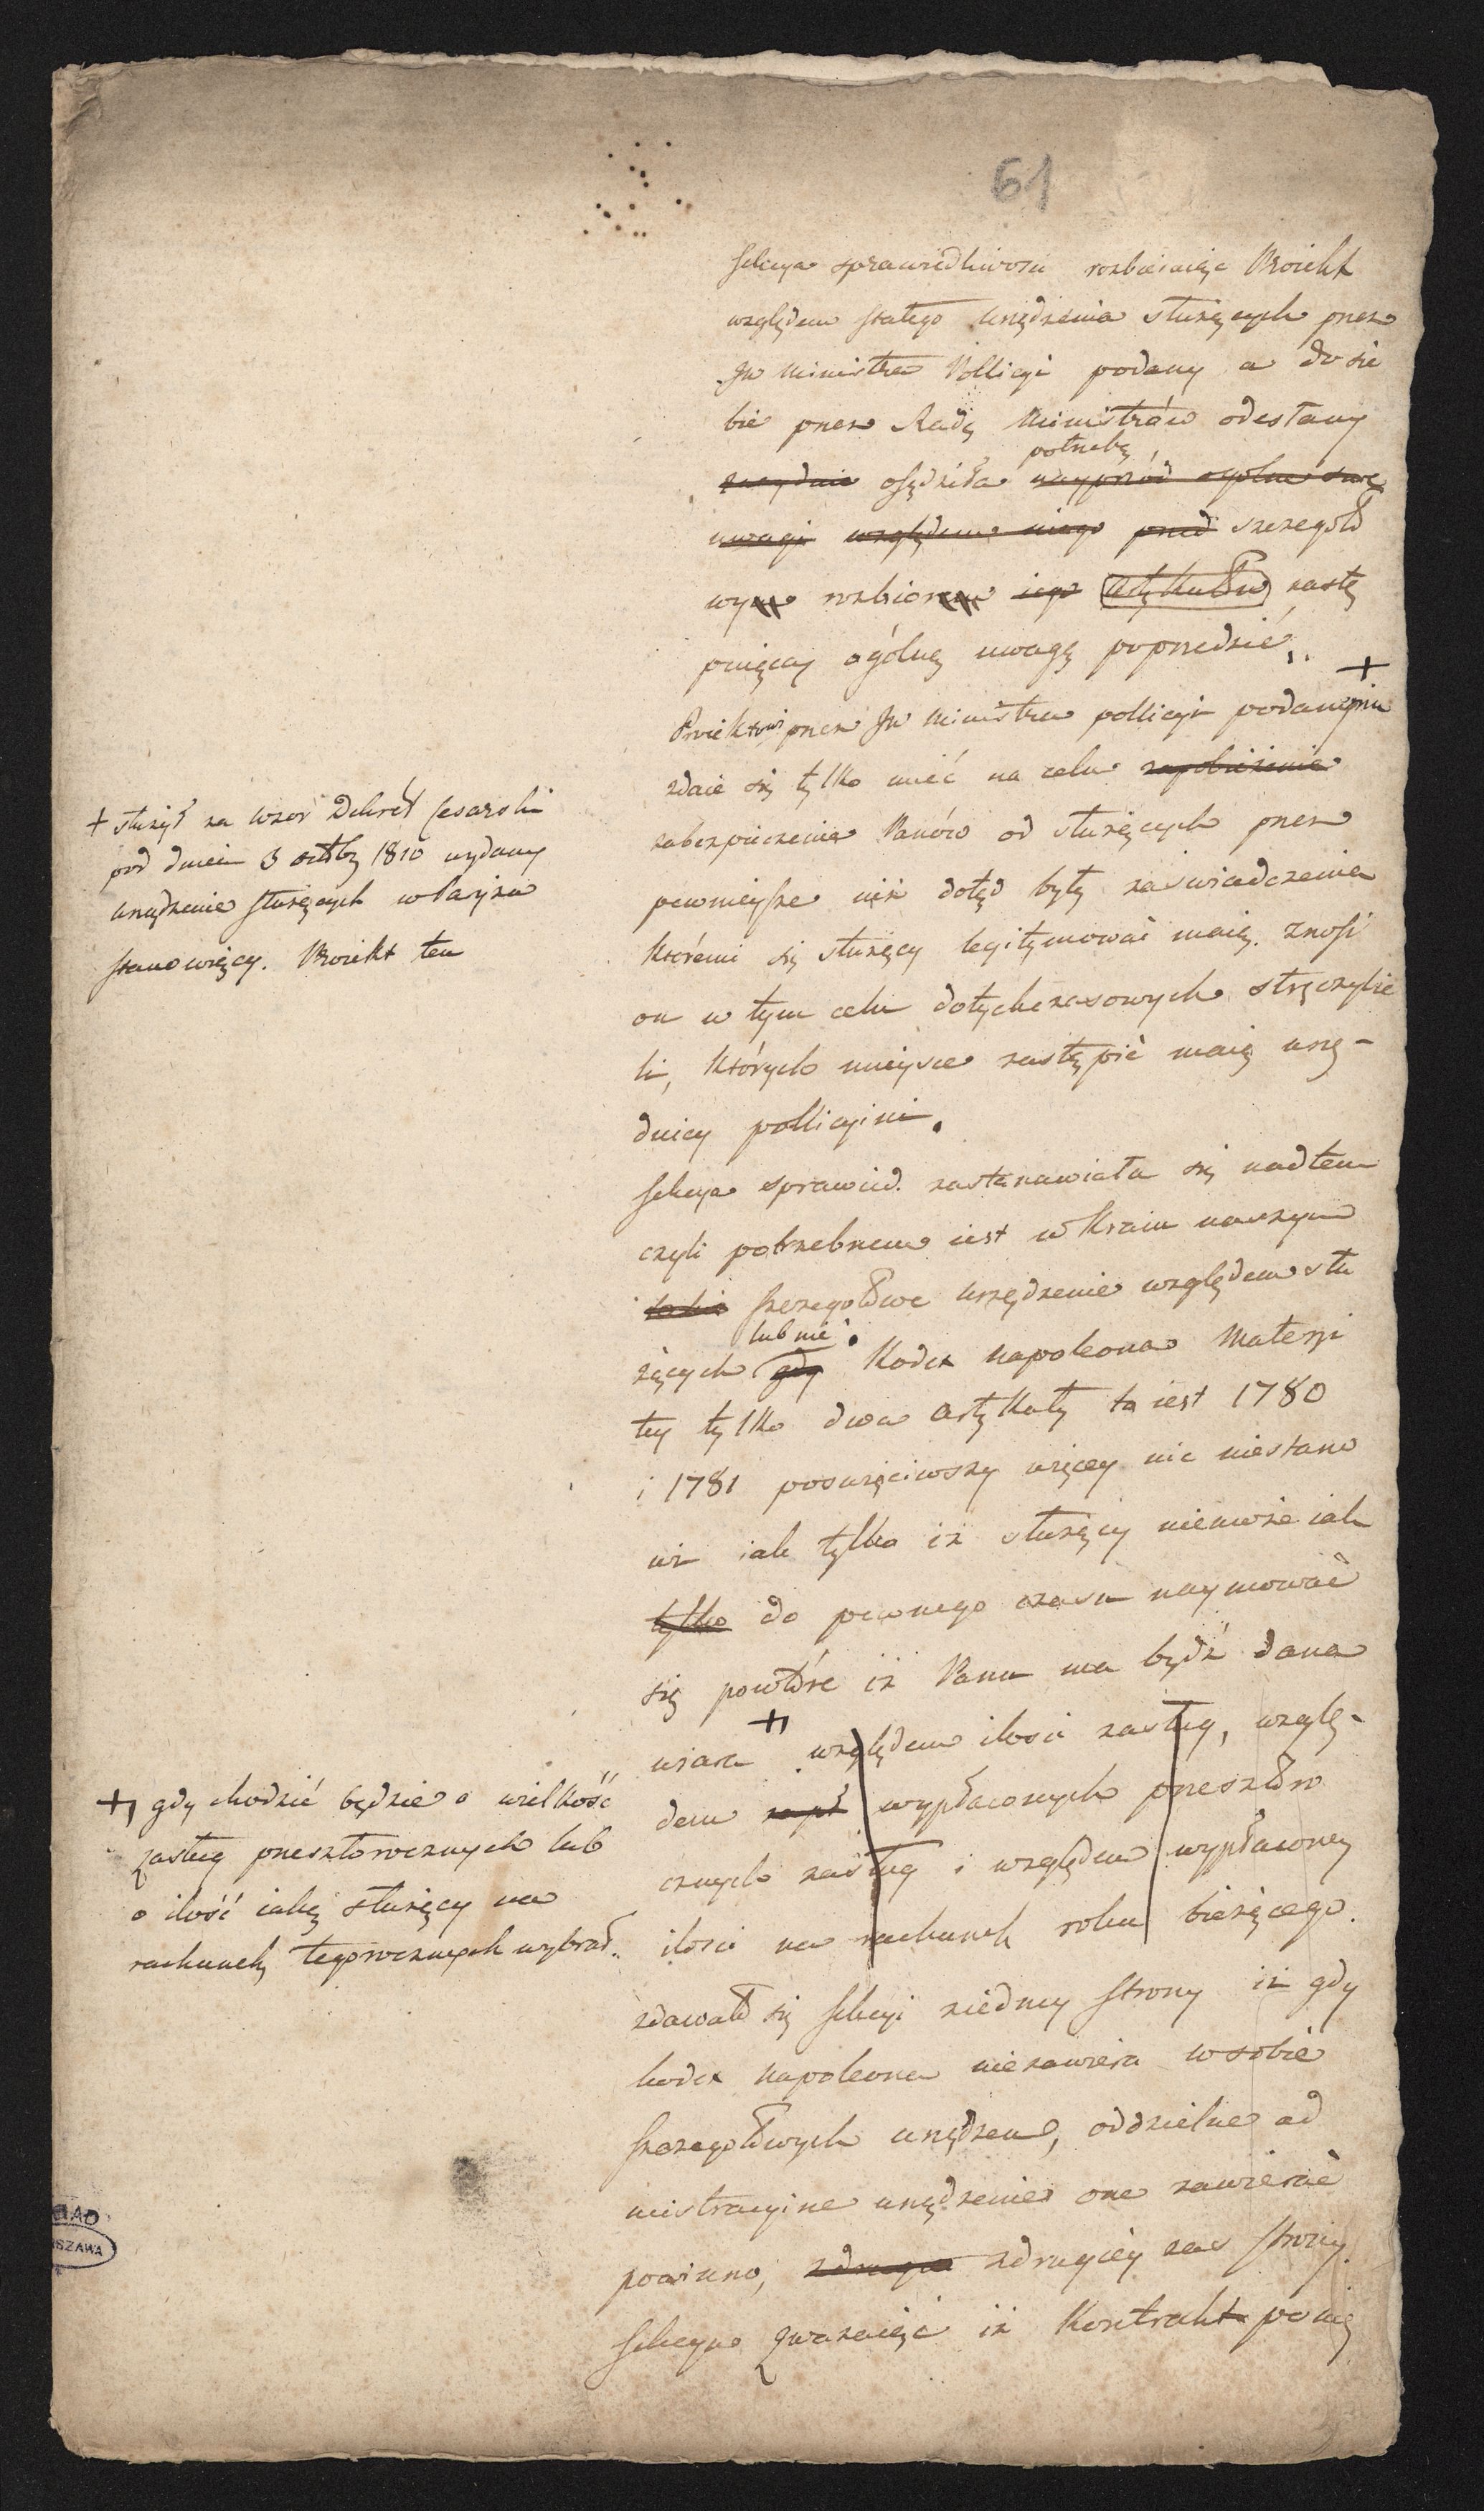 61
Sekcya sprawiedliwości rozbieraiąc Proiekt
względem stałego urządzenia służących przez
JW Ministra Pollicyi podany a do sie
bie przez Radę Ministrów odesłany
potrzebę
osądziła naypzród ogolne swe
uwagi względem niego przed szczegóło
wym rozbiorem iego artykułów nastę
puiącą ogólną uwagą poprzedzić.
+
Proiektowi przez JW Ministra pollicyi podanemu
zdaie się tylko mieć na celu zapobieżenie
zabezpieczenie Panów od służących przez
pewnieysze niż dotąd były zaświadczenia
któremi się służący legitymować maią. Znosi
on w tym celu dotychczasowych stręczycie
li, których mieysce zastąpić maią urzę-
dnicy pollicyini.
Sekcya sprawied. zastanawiała się nadtem
czyli potrzebnem iest w Kraiu naszym
takie szczegołowe urządzenie względem słu
lub nie.
żących gdy Kodex Napoleona Materyi
tey tylko dwa Artykuły to iest 1780
i 1781 poswięciwszy więcey nic niestano
wi iak tylko iż służący niemoże iak
tylko do pewnego czasu naymować
się powtóre iż Panu ma bydź dana
wiara + względem ilości zasług, wzglę-
dem zapł wypłaconych przeszło ro
cznych zasług i względem wypłaconey
ilości na rachunek roku bieżącego.
zdawało się Sekcyi ziedney strony iż gdy
kodex Napoleona niezawiera wsobie
szczegołowych urządzen, oddzielne ad
ministracyine urządzenie one zawierać
powinno, zdrugie zdrugiey zas strony
Sekcya zważaiąc iż Kontrakt po mię
+ służył za wzor Dekret Cesarski
pod dniem 3 octbr 1810 wydany
urządzenie służących w Paryżu
stanowiący. Proiekt ten
+ gdy chodzić będzie o wielkość
zasług przeszłorocznych lub
o ilość iaką służący na
rachunek tegorocznych wybrał.
IAD
SZAWA